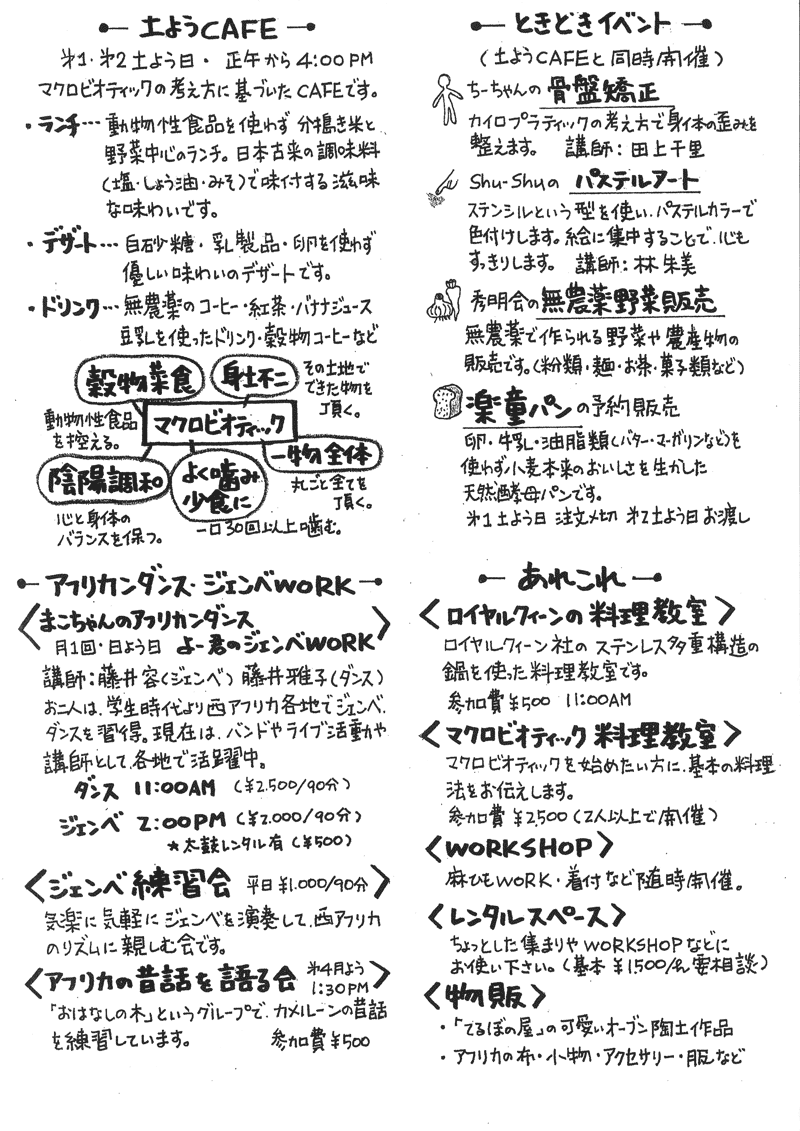 土ようCAFE
第1・第2土よう日・正午から4:00PM
マクロビオティックの考え方に基づいたCAFEです。
・ランチ… 動物性食品を使わず 分搗き米と
野菜中心のランチ。日本古来の調味料
(塩・しょう油・みそ)で味付する滋味
な味わいです。
・デザート… 白砂糖・乳製品・卵を使わず
優しい味わいのデザートです。
・ドリンク… 無農薬のコーヒー・紅茶・バナナジュース
豆乳を使ったドリンク・穀物コーヒーなど
穀物菜食
身土不二
その土地で
できた物を
頂く。
動物性食品
を控える。
マクロビオティック
一物全体
丸ごと全てを
頂く。
陰陽調和
心と身体の
バランスを保つ。
よく噛み
少食に
一口30回以上噛む。
アフリカンダンス・ジェンベWORK
〈まこちゃんのアフリカンダンス
月1回・日よう日 よー君のジェンベWORK〉
講師:藤井容(ジェンベ) 藤井雅子(ダンス)
お二人は、学生時代より西アフリカ各地でジェンベ、
ダンスを習得。現在は、バンドやライブ活動や
講師として、各地で活躍中。
ダンス 11:00AM (¥2,500/90分)
ジェンベ 2:00PM (¥2,000/90分)
★太鼓レンタル有(¥500)
〈ジェンベ練習会 平日¥1,000/90分〉
気楽に気軽にジェンベを演奏して、西アフリカ
のリズムに親しむ会です。
〈アフリカの昔話を語る会 第4月よう
1:30PM〉
「おはなしの木」というグループで、カメルーンの昔話
を練習しています。 参加費¥500
ときどきイベント
(土ようCAFEと同時開催)
ちーちゃんの 骨盤矯正
カイロプラティックの考え方で身体の歪みを
整えます。 講師:田上千里
Shu-Shuの パステルアート
ステンシルという型を使い、パステルカラーで
色付けします。絵に集中することで、心も
すっきりします。 講師:林朱美
秀明会の無農薬野菜販売
無農薬で作られる野菜や農産物の
販売です。(粉類・麺・お茶・菓子類など)
楽童パンの予約販売
卵・牛乳・油脂類(バター・マーガリンなど)を
使わず小麦本来のおいしさを生かした
天然酵母パンです。
第1土よう日 注文〆切 第2土よう日 お渡し
あれこれ
〈ロイヤルクィーンの料理教室〉
ロイヤルクィーン社のステンレス多重構造の
鍋を使った料理教室です。
参加費¥500 11:00AM
〈マクロビオティック料理教室〉
マクロビオティックを始めたい方に、基本の料理
法をお伝えします。
参加費¥2,500(2人以上で開催)
〈WORKSHOP〉
麻ひもWORK・着付など随時開催。
〈レンタルスペース〉
ちょっとした集まりやWORKSHOPなどに
お使い下さい。(基本 ¥1500/h 要相談)
〈物販〉
・「てるぼの屋」の可愛いオーブン陶土作品
・アフリカの布・小物・アクセサリー・服など